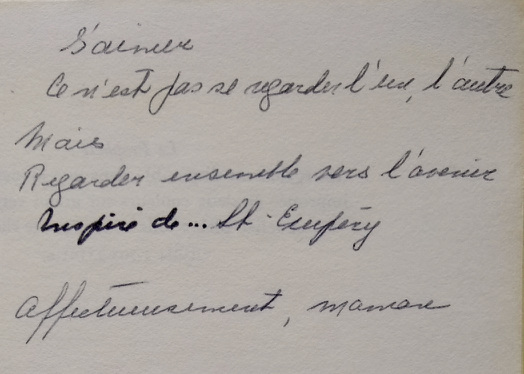 S'aimer
Ce n'est pas se regarder l'un, l'autre
Mais
Regarder ensemble vers l'avenir
Inspiré de... St-Exupéry
Affectueusement, maman